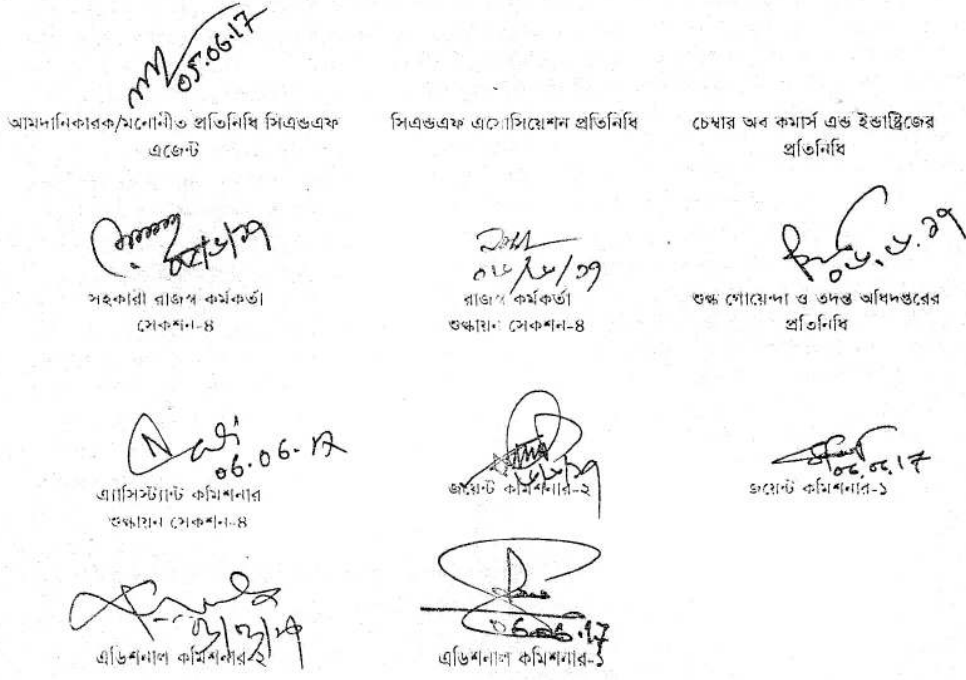 05.06.17
আমদানিকারক/মনোনীত প্রতিনিধি সিএন্ডএফ
এজেন্ট
সিএন্ডএফ এসোসিয়েশন প্রতিনিধি
চেম্বার অব কমার্স এন্ড ইন্ডাষ্ট্রিজের
প্রতিনিধি
সহকারী রাজস্ব কর্মকর্তা
সেকশন-৪
০৬/৬/১৭
রাজস্ব কর্মকর্তা
শুল্কায়ন সেকশন-৪
০৬.৬.১৭
শুল্ক গোয়েন্দা ও তদন্ত অধিদপ্তরের
প্রতিনিধি
06.06.17
এ্যাসিস্ট্যান্ট কমিশনার
শুল্কায়ন সেকশন-৪
জয়েন্ট কমিশনার-২
06.06.17
জয়েন্ট কমিশনার-১
এডিশনাল কমিশনার-২
06.06.17
এডিশনাল কমিশনার-১